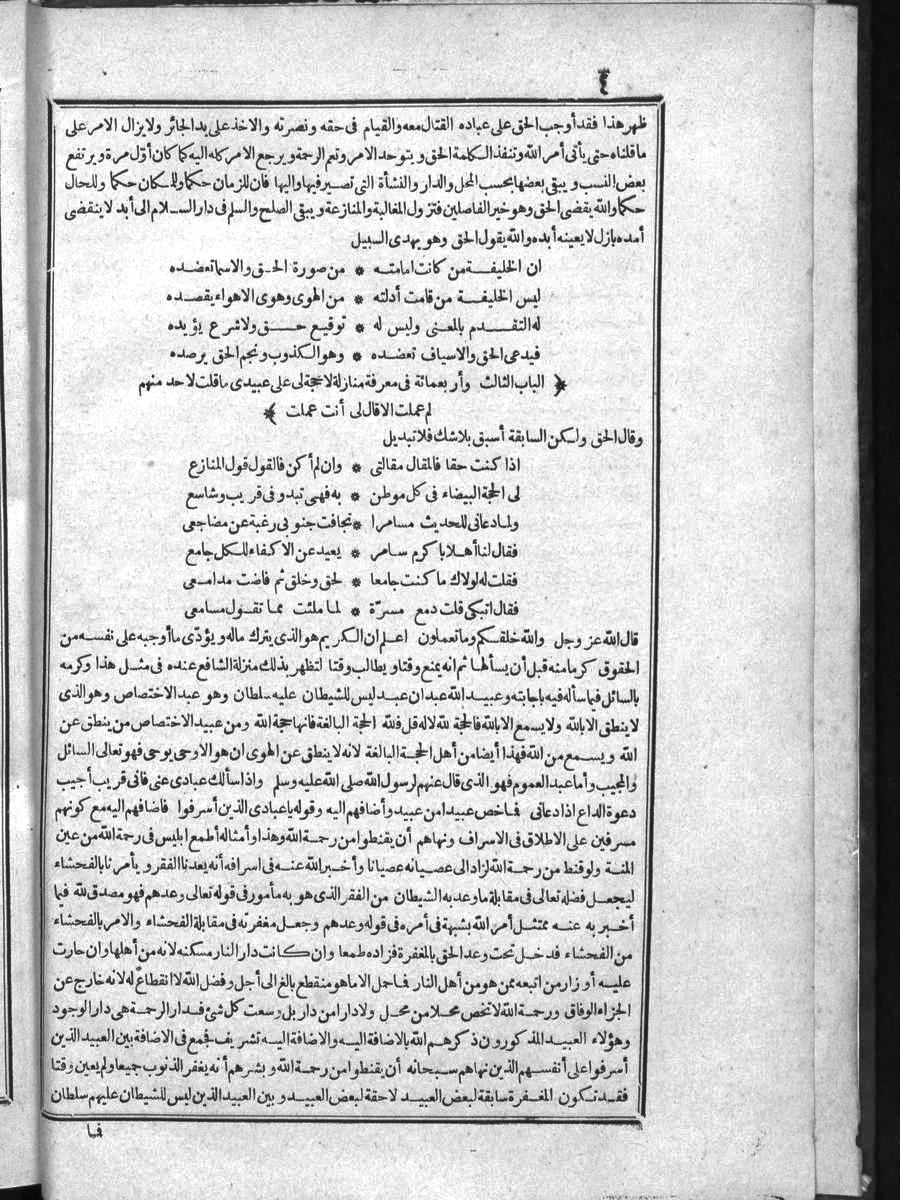 ٤
ظهر هذا فقد أوجب الحق على عباده القتال معه والقيام فى حقه ونصرته والاخذ على يد الجائر ولا يزال الامر على
ما قلناه حتى يأتى أمر الله وتنفذ الكلمة الحق ويتوحد الامر وتعم الرحمة ويرجع الامر كله اليه كما كان أول مرة ويرتفع
بعض النسب ويبقى بعضها بحسب المحل والدار والنشأة التى تصير فيها واليها فان للزمان حكما وللمكان حكما وللحال
حكما والله يقضى الحق وهو خير الفاصلين فتزول المغالبة والمنازعة ويبقى الصلح والسلم فى دار السلام الى أبد لا ينقضى
أمده بازل لا يعينه أبده والله يقول الحق وهو يهدى السبيل
ان الخليفة من كانت امامته * من صورة الحق والاسما تعضده
ليس الخليفة من قامت أدلته * من الهوى وهوى الاهواء يقصده
له التقدم بالمعنى وليس له * توقيع حق ولا شرع يؤيده
فيدعى الحق والاسياف تعضده * وهو الكذوب ونجم الحق يرصده
﴿ الباب الثالث وأربعمائة فى معرفة منازلة لا حجة لى على عبيدى ما قلت لاحد منهم
لم عملت الا قال لى أنت عملت ﴾
وقال الحق ولكن السابقة أسبق بلا شك فلا تبديل
اذا كنت حقا فالمقال مقالتى * وان لم أكن فالقول قول المنازع
لى الحجة البيضاء فى كل موطن * به فهى تبدو فى قريب وشاسع
ولما دعانى للحديث مسامرا * تجافت جنوبى رغبة عن مضاجعى
فقال لنا أهلا باكرم سامر * يعيد عن الاكفاء للكل جامع
فقلت له لولاك ما كنت جامعا * لحق وخلق ثم فاضت مدامعى
فقال اتبكى قلت دمع مسرّة * لما ملئت مما تقول مسامعى
قال الله عز وجل والله خلقكم وما تعملون اعلم ان الكريم هو الذى يترك ماله ويؤدّى ما أوجبه على نفسه من
الحقوق كرما منه قبل أن يسألها ثم انه يمنع وقتا ويطالب وقتا لتظهر بذلك منزلة الشافع عنده فى مثل هذا وكرمه
بالسائل فيما سأله فيه باجابته وعبيد الله عبدان عبد ليس للشيطان عليه سلطان وهو عبد الاختصاص وهو الذى
لا ينطق الا بالله ولا يسمع الا بالله فالحجة لله لا له قل فلله الحجة البالغة فانها حجة الله ومن عبيد الاختصاص من ينطق عن
الله ويسمع من الله فهذا أيضا من أهل الحجة البالغة لانه لا ينطق عن الهوى ان هو الا وحى يوحى فهو تعالى السائل
والمجيب وأما عبد العموم فهو الذى قال عنهم لرسول الله صلى الله عليه وسلم واذا سألك عبادى عنى فانى قريب أجيب
دعوة الداع اذا دعانى فما خص عبيدا من عبيد وأضافهم اليه وقوله يا عبادى الذين أسرفوا فاضافهم اليه مع كونهم
مسرفين على الاطلاق فى الاسراف ونهاهم أن يقنطوا من رحمة الله وهذا وأمثاله أطمع ابليس فى رحمة الله من عين
المنة ولو قنط من رحمة الله لزاد الى عصيانه عصيانا وأخبر الله عنه فى اسرافه أنه يعدنا الفقر ويأمرنا بالفحشاء
ليجعل فضله تعالى فى مقابلة ما وعد به الشيطان من الفقر الذى هو به مأمور فى قوله تعالى وعدهم فهو مصدق لله فيما
أخبر به عنه ممتثل أمر الله بشبهة فى أمره فى قوله وعدهم وجعل مغفرته فى مقابلة الفحشاء والامر بالفحشاء
من الفحشاء فدخل تحت وعد الحق بالمغفرة فزاده طمعا وان كانت دار النار مسكنه لانه من أهلها وان حارت
عليه أوزار من اتبعه ممن هو من أهل النار فما حمل الا ما هو منقطع بالغ الى أجل وفضل الله لا انقطاع له لانه خارج عن
الجزاء الوفاق ورحمة الله لا تخص محلا من محل ولا دارا من دار بل وسعت كل شئ فدار الرحمة هى دار الوجود
وهؤلاء العبيد المذكورون ذكرهم الله بالاضافة اليه والاضافة اليه تشريف فجمع فى الاضافة بين العبيد الذين
أسرفوا على أنفسهم الذين نهاهم سبحانه أن يقنطوا من رحمة الله وبشرهم أنه يغفر الذنوب جميعا ولم يعين وقتا
فقد تكون المغفرة سابقة لبعض العبيد لاحقة لبعض العبيد وبين العبيد الذين ليس للشيطان عليهم سلطان
فما